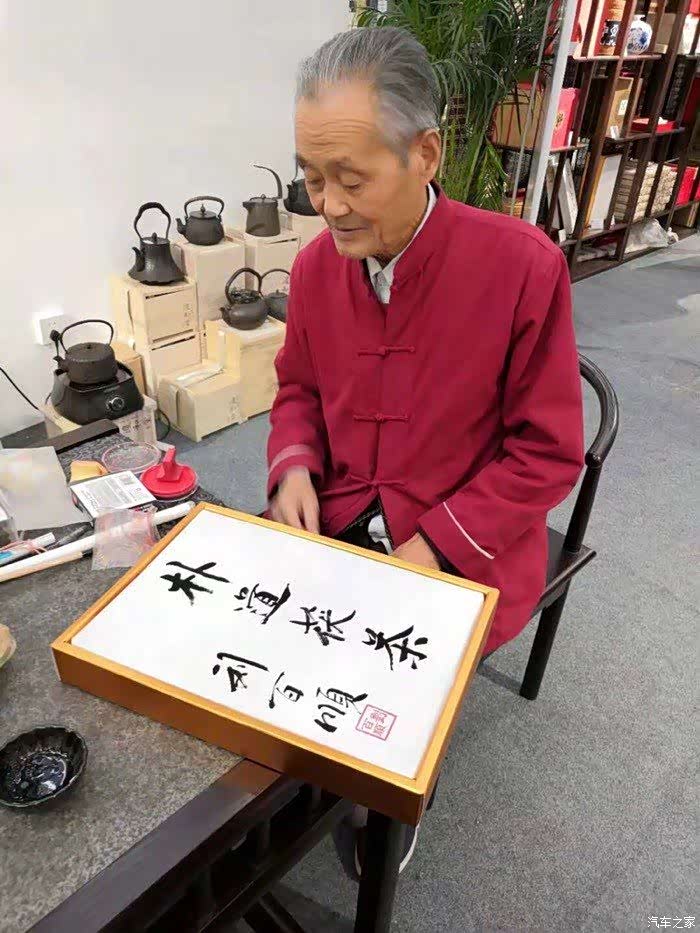 朴道茯茶
刘百顺
汽车之家